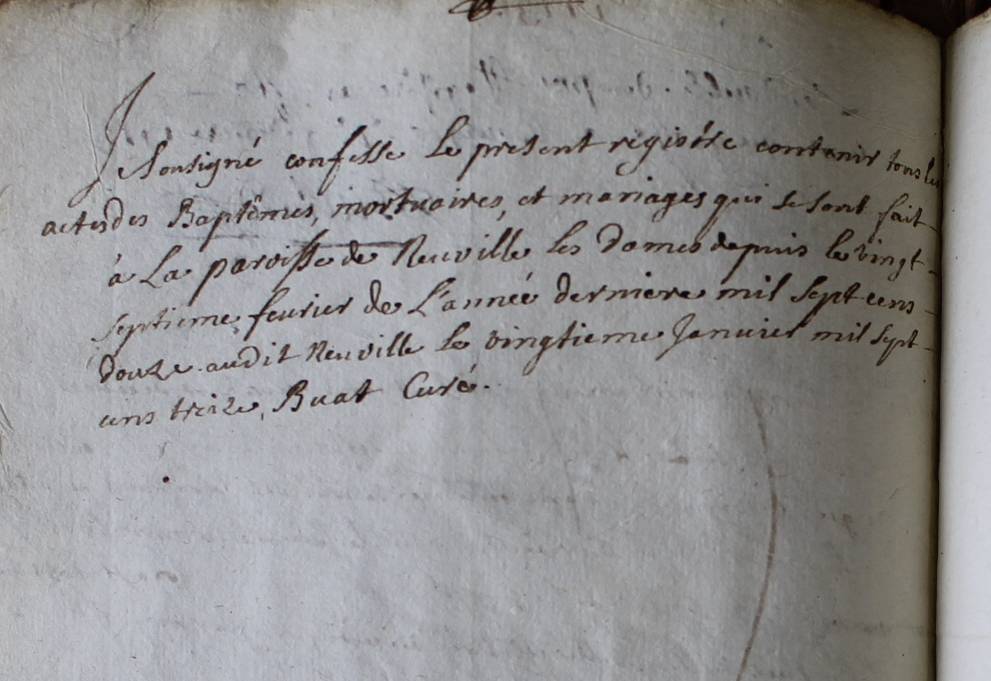 Je sousigné confesse le present registre contenir tous les
actes des Baptêmes, mortuaires, et mariages qui se sont fait
à La paroisse de Neuville les Dames depuis le vingt-
septieme fevrier de L'année derniere mil sept cens
douze audit Neuville le vingtieme Janvier mil sept-
cens treize, Buat Curé.